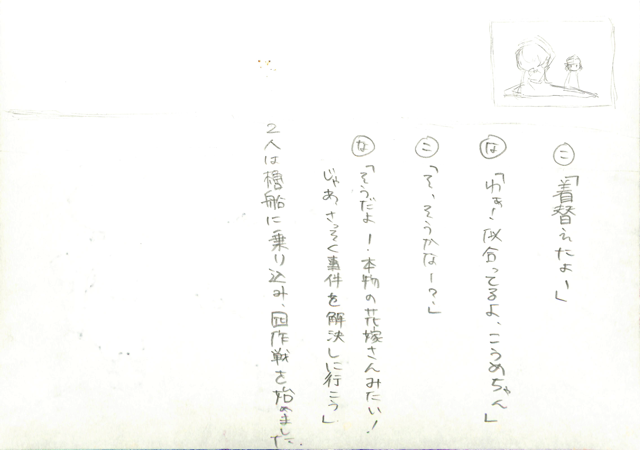 こ「着替えたよ〜」
な「わぁ!似合ってるよ、こうめちゃん」
こ「そ、そうかなー?」
な「そうだよ!本物の花嫁さんみたい!
じゃあ、さっそく事件を解決しに行こう」
2人は櫓船に乗り込み、囮作戦を始めました。